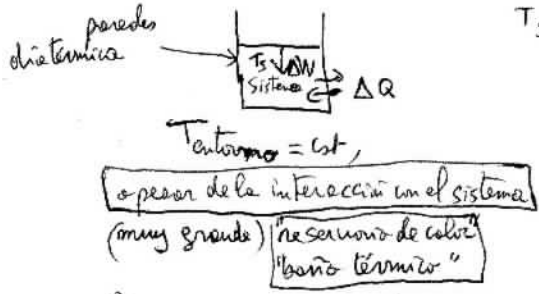 T_s
paredes
diatérmica
T_s ↓ΔW
Sistema
ΔQ
T_entorno = cst,
a pesar de la interacción con el sistema
(muy grande) "reservorio de calor"
"baño térmico"